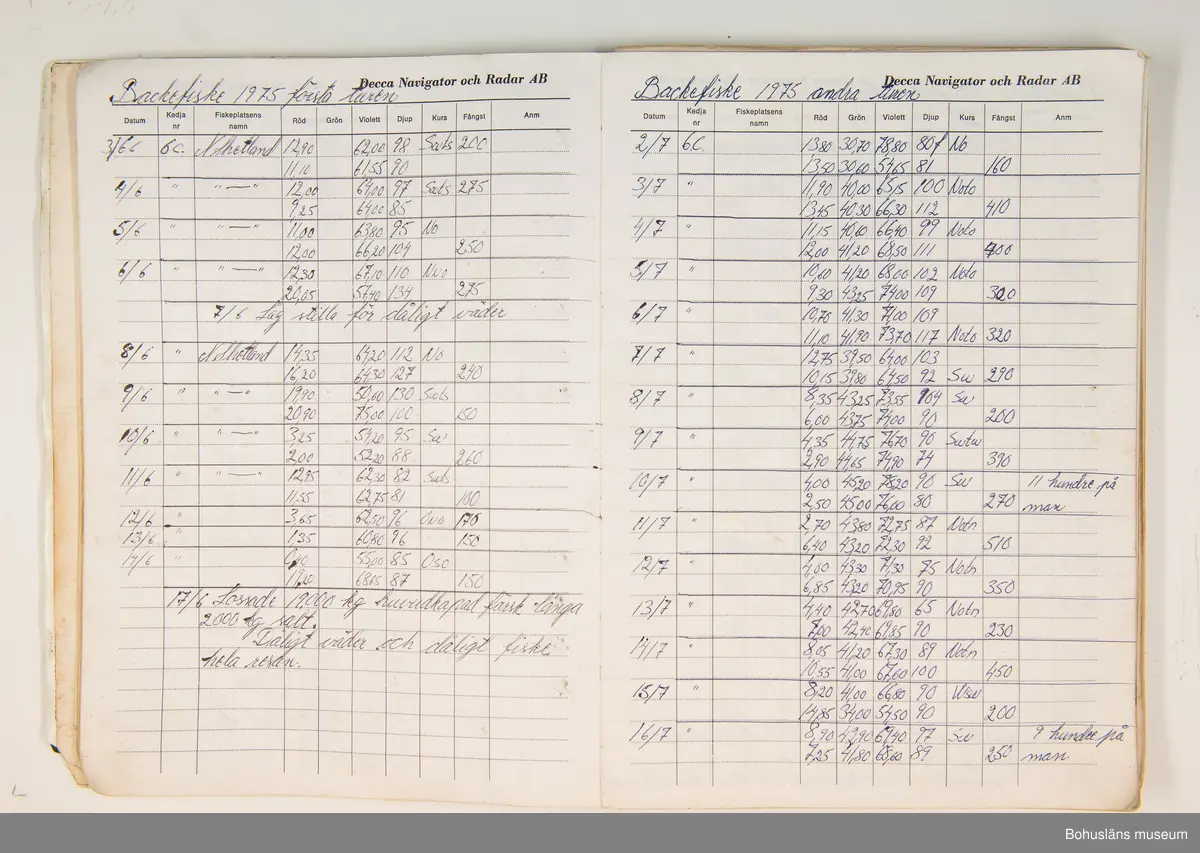 Decca Navigator och Radar AB
Backefiske 1975 första turen
Datum Kedja nr Fiskeplatsens namn Röd Grön Violett Djup Kurs Fångst Anm
3/6 6C. N Shetland 12,90 62,00 98 200
11,10 61,55 90
4/6 " " — " 12,00 64,00 97 275
9,25 64,00 85
5/6 " " — " 11,00 63,80 95 No
12,00 66,20 104 250
6/6 " " — " 12,30 67,10 110
20,05 57,40 134 275
7/6 Låg stilla för dåligt väder
8/6 " N Shetland 14,35 64,20 112 No
16,20 64,30 127 240
9/6 " " — " 19,90 50,60 130
20,90 75,00 100 150
10/6 " " — " 3,25 54,20 95 Sw
2,00 52,20 88 260
11/6 " " — " 12,95 62,30 82
11,55 62,75 81 100
12/6 " 3,65 62,50 96 170
13/6 " 1,35 60,80 96 150
14/6 " 55,00 85 Oso
19,20 68,65 87 150
17/6 Lossade 19000 kg huvudkapad färsk långa
2000 kg salt.
Dåligt väder och dåligt fiske
hela resan.
Decca Navigator och Radar AB
Backefiske 1975 andra turen
Datum Kedja nr Fiskeplatsens namn Röd Grön Violett Djup Kurs Fångst Anm
2/7 6C. 13,80 30,70 78,80 80 No
13,50 30,60 54,65 81 160
3/7 " 11,90 40,00 65,15 100 Noto
13,45 40,30 66,30 112 410
4/7 " 11,15 40,60 66,40 99 Noto
12,00 41,20 68,50 111 400
5/7 " 10,60 41,20 68,00 102 Noto
9,30 43,25 74,00 109 320
6/7 " 10,75 41,30 71,00 109
11,10 41,90 73,70 117 Noto 320
7/7 " 12,75 39,50 64,00 103
10,15 39,80 64,50 92 Sw 290
8/7 " 8,35 43,25 73,55 104 Sw
6,00 43,75 74,00 90 200
9/7 " 4,35 44,75 76,70 90 Swtw
2,90 44,65 74,90 74 390
10/7 " 4,00 45,20 75,20 90 Sw 11 hundre på
2,50 45,00 76,00 80 270 man
11/7 " 2,70 43,80 72,75 87 Notn
6,40 43,20 72,30 92 510
12/7 " 4,00 43,30 71,30 75 Notn
6,85 43,20 70,95 90 350
13/7 " 4,40 42,70 69,80 65 Notn
7,00 42,40 69,85 90 230
14/7 " 8,05 41,20 67,30 89 Notn
10,55 41,00 67,60 100 450
15/7 " 8,20 41,00 66,80 90 Wsw
14,85 34,00 54,50 90 200
16/7 " 8,90 42,90 67,40 97 Sw 9 hundre på
7,25 41,80 68,60 89 250 man.
Bohusläns museum